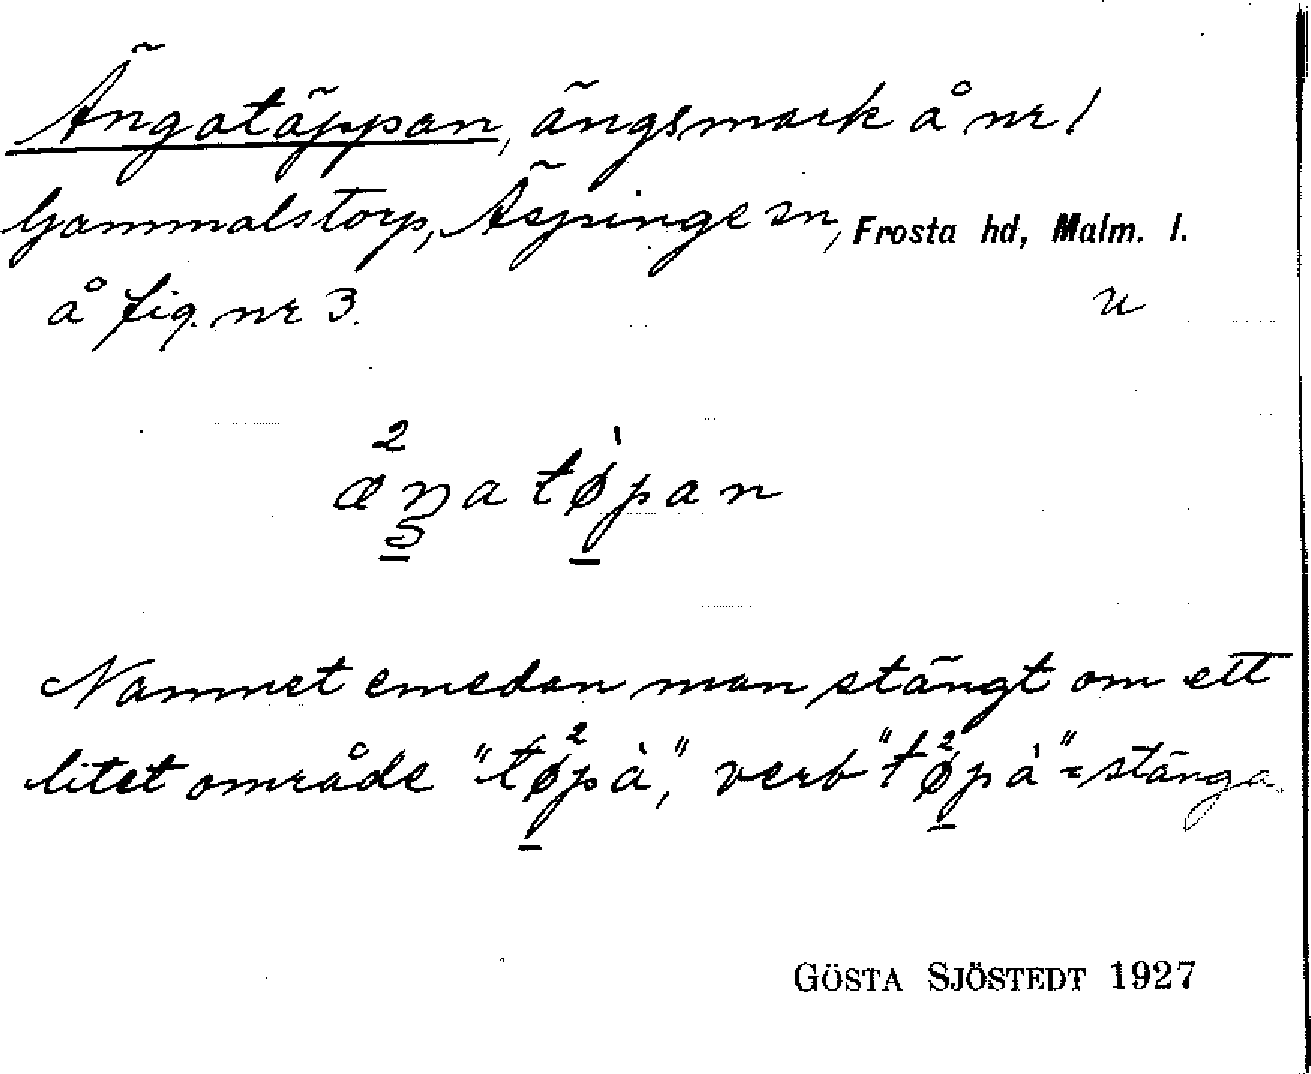 Ängatäppan, ängsmark å nr 1
Gammalstorp, Äspinge sn, Frosta hd, Malm. l.
å fig. nr 3. u
æŋa tøpan
Namnet emedan man stängt om ett
litet område "tøpà", verb "tøpà" = stänga.
GÖSTA SJÖSTEDT 1927